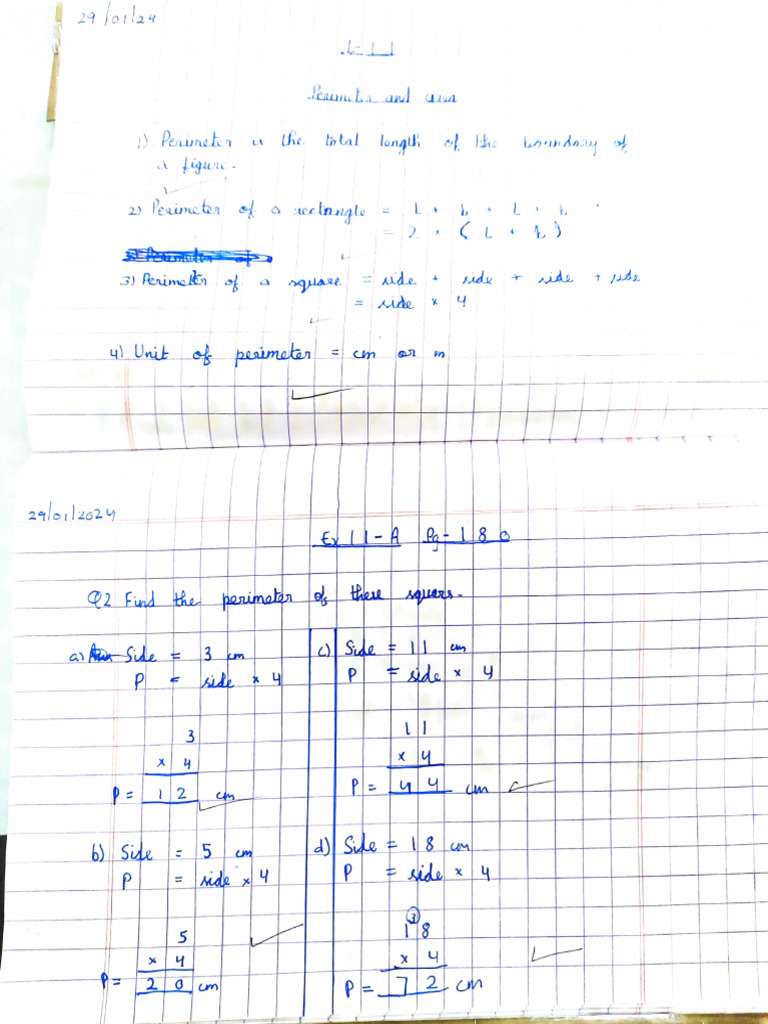 29/01/24
L-11
Perimeter and area
1) Perimeter is the total length of the boundary of
a figure.
2) Perimeter of a rectangle = L + b + L + b
= 2 × (L + b)
3) Perimeter of a square = side + side + side + side
= side × 4
4) Unit of perimeter = cm or m
29/01/2024
Ex 11-A Pg-180
Q2 Find the perimeter of these squars.
a) Side = 3 cm
P = side × 4
3
× 4
P = 12 cm
b) Side = 5 cm
P = side × 4
5
× 4
P = 20 cm
c) Side = 11 cm
P = side × 4
11
× 4
P = 44 cm
d) Side = 18 cm
P = side × 4
3
18
× 4
P = 72 cm